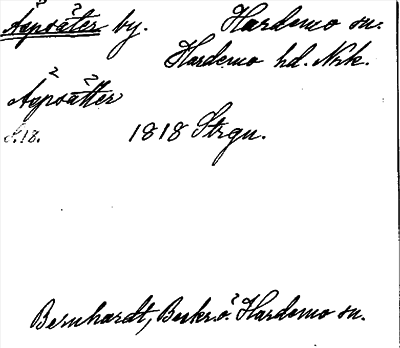 Aspsäter by. Hardemo sn.
Hardemo hd. Nrk.
Aspsätter
S. 18. 1818 Strgn.
Bernhardt, Beskr. ö. Hardemo sn.